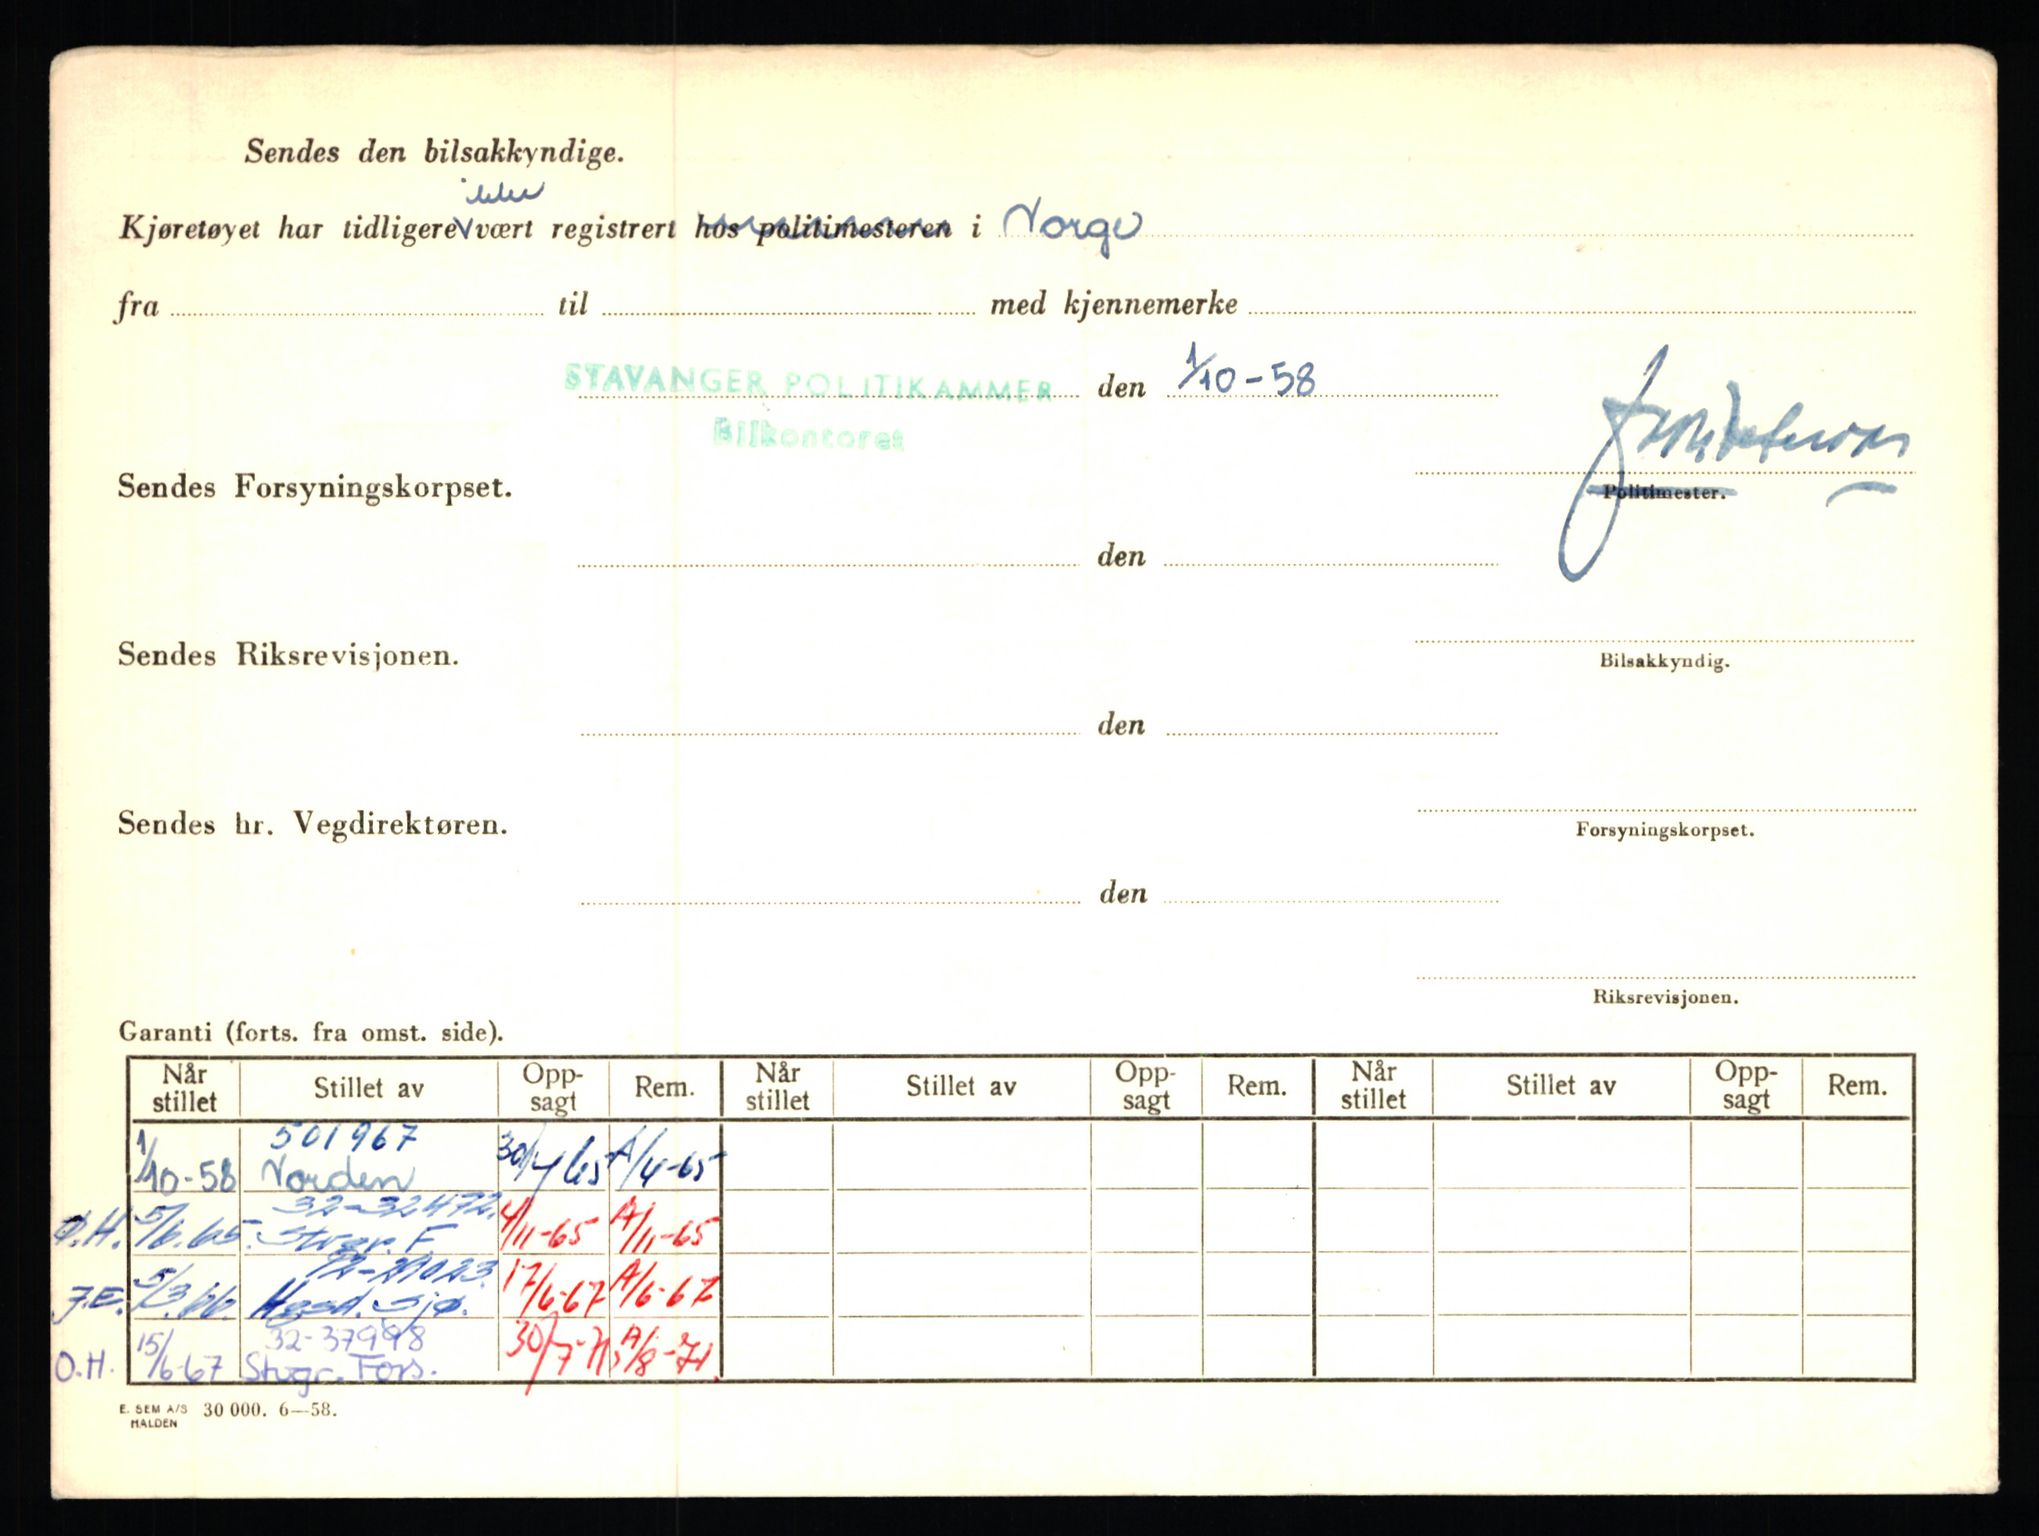 Sendes den bilsakkyndige.
ikke
Kjøretøyet har tidligere vært registrert hos politimesteren i Norge
fra til med kjennemerke
STAVANGER POLITIKAMMER den 1/10-58
Bilkontoret
Sendes Forsyningskorpset.
Politimester.
den
Sendes Riksrevisjonen.
Bilsakkyndig.
den
Sendes hr. Vegdirektøren.
Forsyningskorpset.
den
Riksrevisjonen.
Garanti (forts. fra omst. side).
Når stillet Stillet av Opp-sagt Rem. Når stillet Stillet av Opp-sagt Rem. Når stillet Stillet av Opp-sagt Rem.
501967
1/10-58 Norden 30/4 65 A/4-65
32-32472.
Ø.H. 5/6.65. Stvgr. F 4/11-65 A/11-65
72-21023.
J.E. 5/3.66. Hgsd. Sjø. 17/6-67 A/6-67
32-37998
O.H. 15/6-67 Stvgr. Fors. 30/7-71 A/8-71
E. SEM A/S 30 000. 6—58.
HALDEN